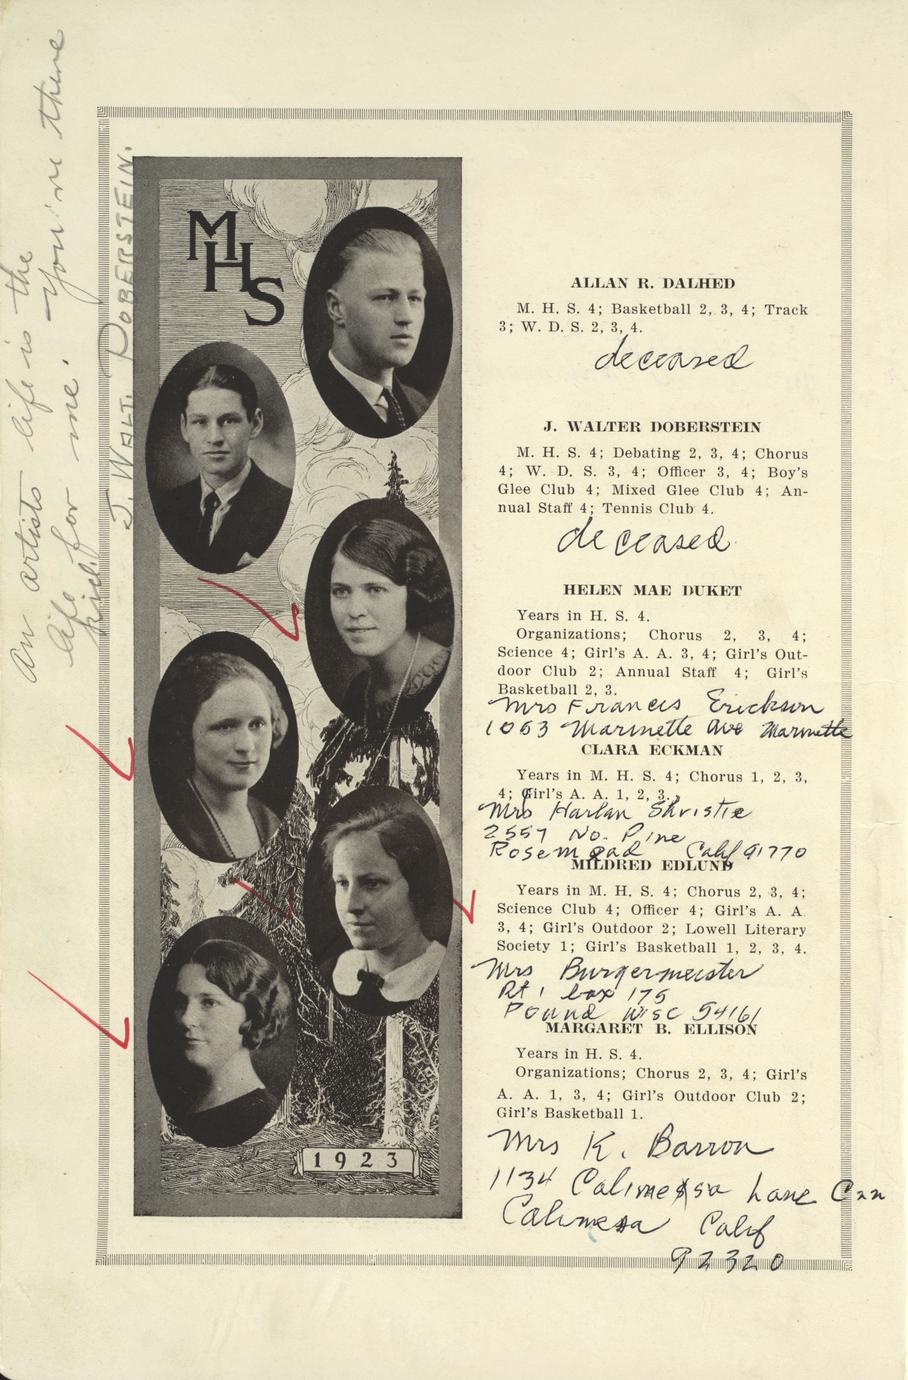 An artists life is the
life for me. You're there
kid.
J. WALT. DOBERSTEIN.
MHS
ALLAN R. DALHED
M. H. S. 4; Basketball 2, 3, 4; Track
3; W. D. S. 2, 3, 4.
deceased
J. WALTER DOBERSTEIN
M. H. S. 4; Debating 2, 3, 4; Chorus
4; W. D. S. 3, 4; Officer 3, 4; Boy's
Glee Club 4; Mixed Glee Club 4; An-
nual Staff 4; Tennis Club 4.
deceased
HELEN MAE DUKET
Years in H. S. 4.
Organizations; Chorus 2, 3, 4;
Science 4; Girl's A. A. 3, 4; Girl's Out-
door Club 2; Annual Staff 4; Girl's
Basketball 2, 3.
Mrs Francis Erickson
1063 Marinette Ave Marinette
CLARA ECKMAN
Years in M. H. S. 4; Chorus 1, 2, 3,
4; Girl's A. A. 1, 2, 3.
Mrs Harlan
2557 No. Pine
Rosemead Calif 91770
MILDRED EDLUND
Years in M. H. S. 4; Chorus 2, 3, 4;
Science Club 4; Officer 4; Girl's A. A
3, 4; Girl's Outdoor 2; Lowell Literary
Society 1; Girl's Basketball 1, 2, 3, 4.
Mrs Burgermeister
Rt 1 box 175
Pound Wisc 54161
MARGARET B. ELLISON
Years in H. S. 4.
Organizations; Chorus 2, 3, 4; Girl's
A. A. 1, 3, 4; Girl's Outdoor Club 2;
Girl's Basketball 1.
Mrs K. Barron
1134 Calimessa Lane
Calimesa Calif
92320
1923